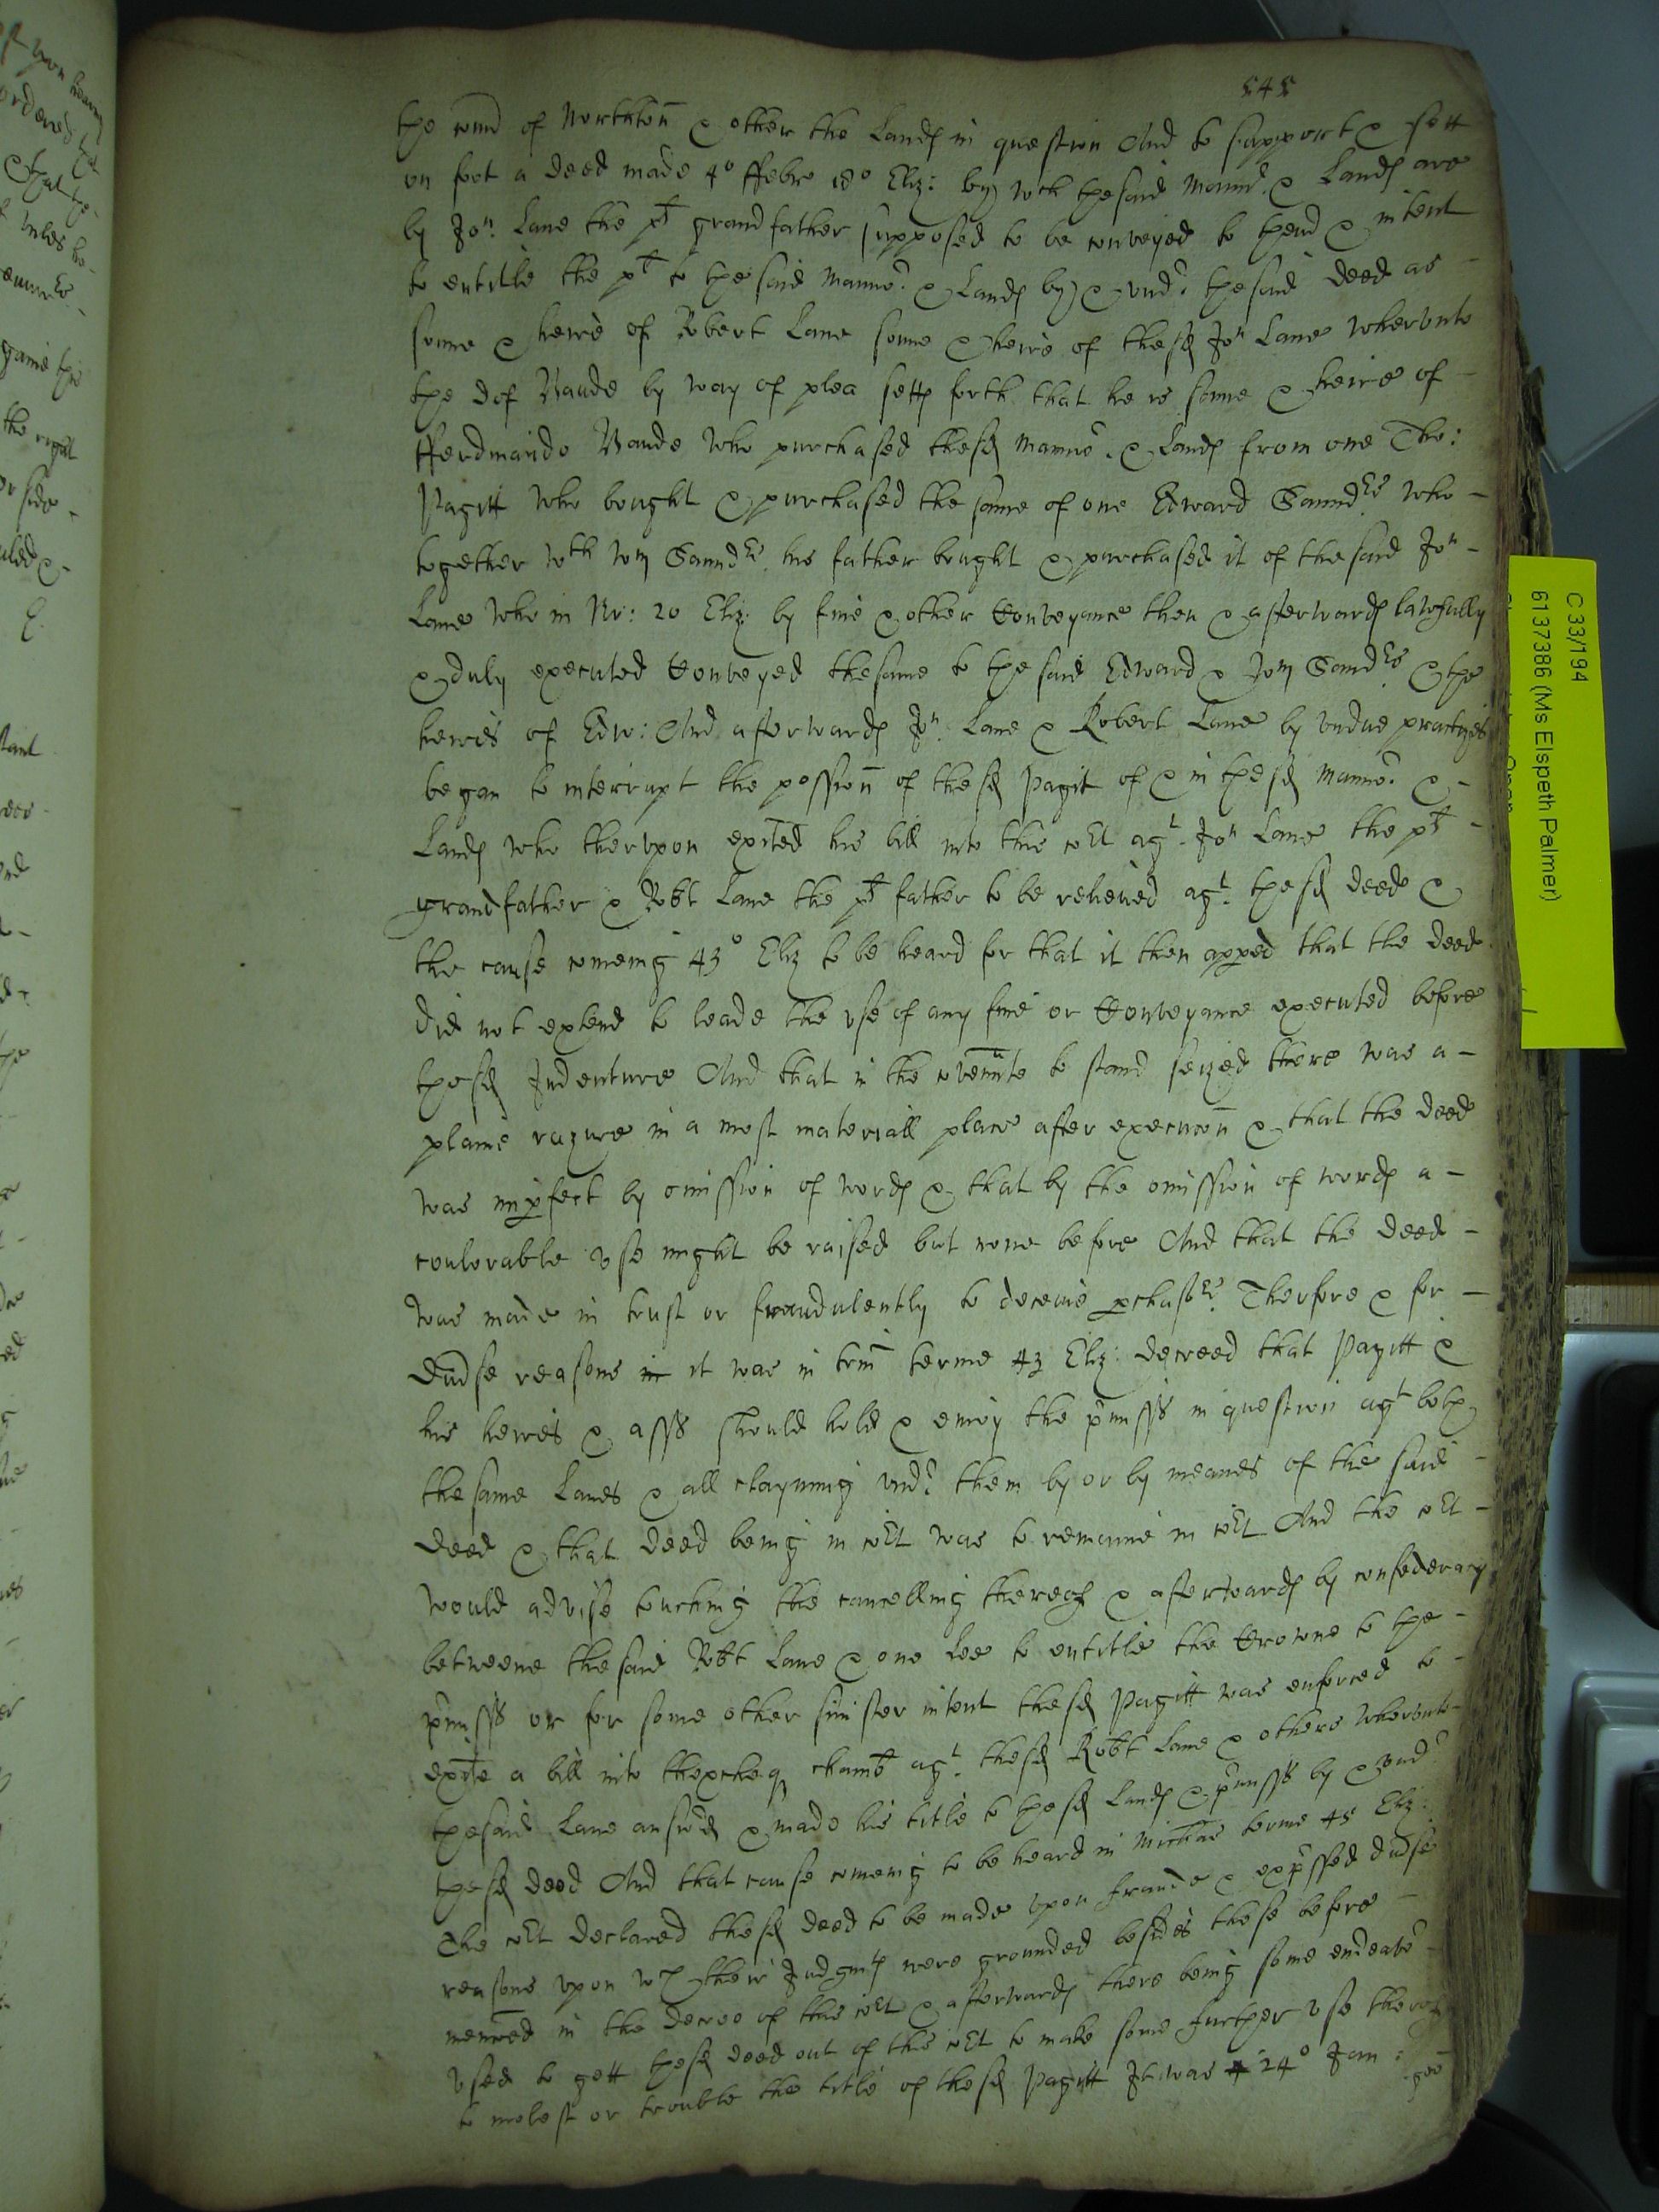 545
the com̃ of Northton̄ & other the Land℮ in question And to support & sett
on foot a deed made 4° ffebr 18° Eliz: by wch the said Mann̄r & Land℮ are
by Jon. Lane the plt grandfather supposed to be conveyed to thend & intent
to entitle the plt to the said Mannor & Land℮ by & vnd̾ the said deed as -
sonne & heire of Robert Lane sonne & heire of the sd Jon Lane wherunto
the def Vaude by way of plea setth forth that he is sonne & heire of -
fferdinando Vaude who purchased the sd Mannor & Land℮ from one Tho:
Pagitt who bought & purchased the same of one Edward Saundrs who -
together wth Wm Saundrs his father bought & purchased it of the said Jon -
Lane who in 20 Eliz: by fine & other Conveyance then & afterward℮ lawfully
& duly executed Conveyed the same to the said Edward & Wm Sandrs & the
heires of Edw: And afterward℮ Jon. Lane & Robert Lane by vndue practizes
began to interrupt the possion̄ of the sd Pagit of & in the sd Mannor & -
Land℮ who thervpon exited his bill into this coᵗᵗ agt. Jon Lane the plt -
grandfather & Robt Lane the plt father to be releived agt. the sd deed &
the cause comeing 43° Eliz to be heard for that it then apped that the deed
did not extend to leade the vse of any fine or Conveyance executed before
the sd Indenture And that in the covennte to stand seized there was a -
plaine razure in a most materiall place after execucon̄ & that the deed
was imp̱fect by omission of word℮ & that by the omission of word℮ a -
coulorable vse might be raised but none before And that the deed -
was made in trust or fraudulently to deceive p̱chasrs. Therfore & for -
divse reasons in it was in trin̄ terme 43 Eliz: decreed that Pagitt &
his heires & asss should hold & enioy the p̄miss℮ in question agt both
the same Lanes & all clayming vnd̾ them by or by meanes of the said -
deed & that deed being in coᵗᵗ was to remaine in coᵗᵗ And the coᵗᵗ -
would advise touching the cancelling thereof & afterward℮ by confederacy
betweene the said Robt Lane & one Lee to entitle the Crowne to the -
p̄miss℮ or for some other sinister intent the sd Pagitt was enforced to -
exite a bill into thexcheq̨ chamb agt. the sd Robt Lane & others wherunto -
the said Lane answed & made his title to the sd Land℮ & p̄miss℮ by & vnd̾
the sd deed And that cause comeing to be heard in Michas terme 45 Eliz:
The coᵗᵗ declared the sd deed to be made vpon fraude & exp̄ssed divse
reasons vpon wch their Judgmt℮ were grounded besides those before -
menc̄oed in the decree of this coᵗᵗ & afterward℮ there being some endeavor
vsed to gett the sd deed out of this coᵗᵗ to make some further vse therof
to molest or trouble the title of the sd Pagitt It was 24° Jan:
C 33/194
6137386 (Ms Elspeth Palmer)